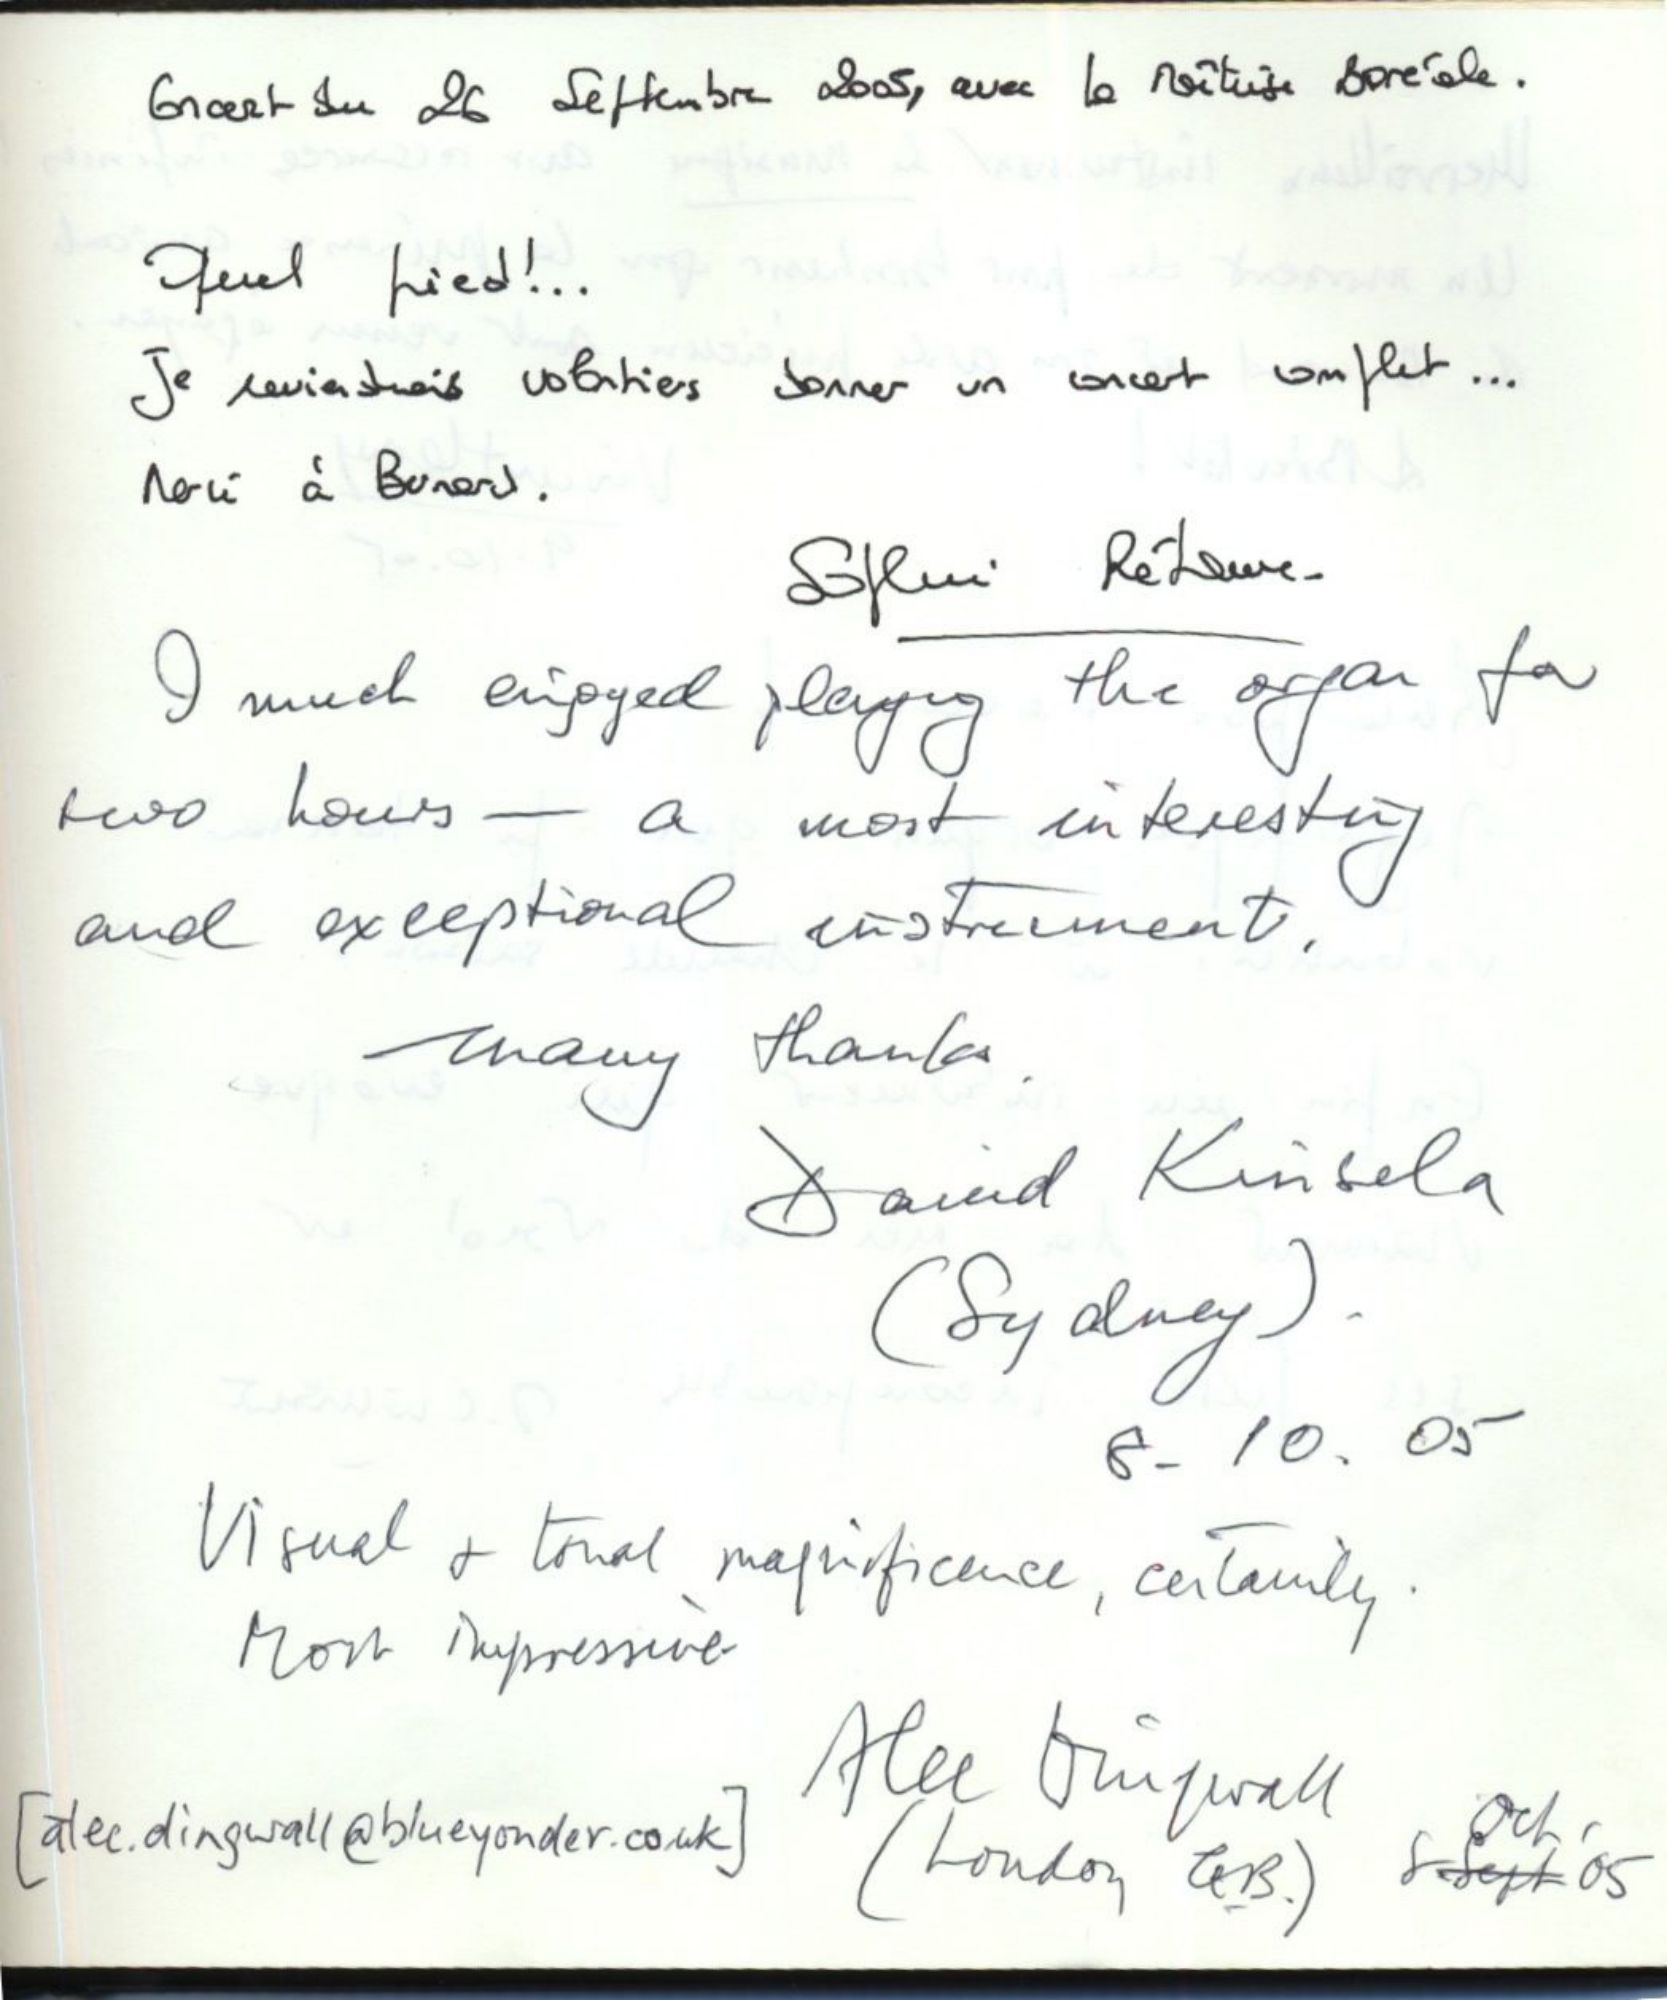 Concert du 26 Septembre 2005, avec la Maîtrise Boréale.
Quel pied!...
Je reviendrais volontiers donner un concert complet...
Merci à Bernard.
I much enjoyed playing the organ for
two hours — a most interesting
and exceptional instrument.
Many thanks.
David Kinsela
(Sydney).
8- 10. 05
Visual & tonal magnificence, certainly.
Most impressive
Alec Dingwall
[alec.dingwall@blueyonder.co.uk]
(London G.B.) 8 Sept Oct. '05